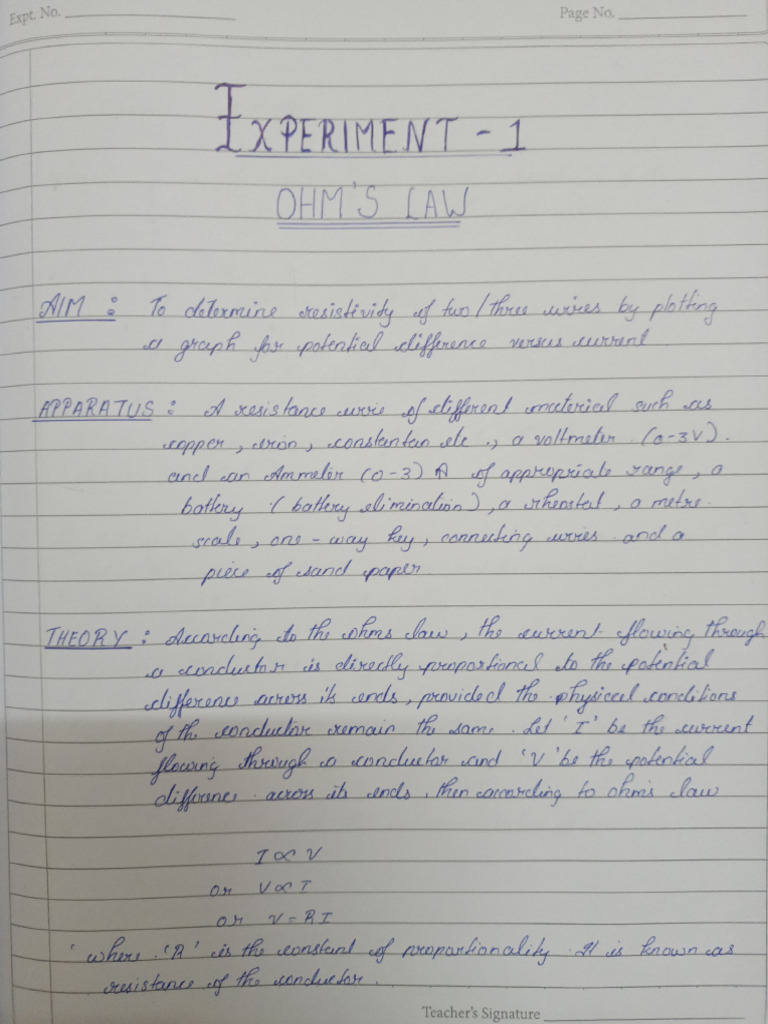 Expt. No.
Page No.
EXPERIMENT - 1
OHM'S LAW
AIM : To determine resistivity of two/three wires by plotting
a graph for potential difference versus current
APPARATUS : A resistance wrie of different material such as
copper, iron, constantan etc ., a voltmeter (0-3V).
and an Ammeter (0-3) A of appropriate range, a
battery (battery elimination), a rheostat, a metre
scale, one-way key, connecting wries and a
piece of sand paper
THEORY : According to the ohms law, the current flowing through
a conductor is directly proportional to the potential
difference across its ends, provided the physical conditions
of the conductor remain the same. Let 'I' be the current
flowing through a conductor and 'V' be the potential
difference across its ends, then according to ohm's law
I ∝ V
or V ∝ I
or V = RI
where 'R' is the constant of proportionality. It is known as
resistance of the conductor.
Teacher's Signature